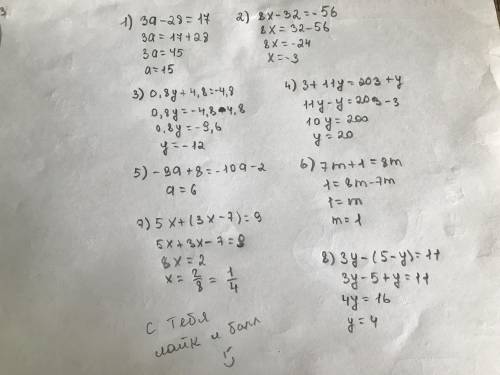 1) 3a-28=17
3a=17+28
3a=45
a=15
2) 8x-32=-56
8x=32-56
8x=-24
x=-3
3) 0,8y+4,8=-4,8
0,8y=-4,8-4,8
0,8y=-9,6
y=-12
4) 3+11y=203+y
11y-y=203-3
10y=200
y=20
5) -9a+8=-10a-2
a=6
6) 7m+1=8m
1=8m-7m
1=m
m=1
7) 5x+(3x-7)=9
5x+3x-7=9
8x=2
x=2/8=1/4
8) 3y-(5-y)=11
3y-5+y=11
4y=16
y=4
с тебя
лайк и балл